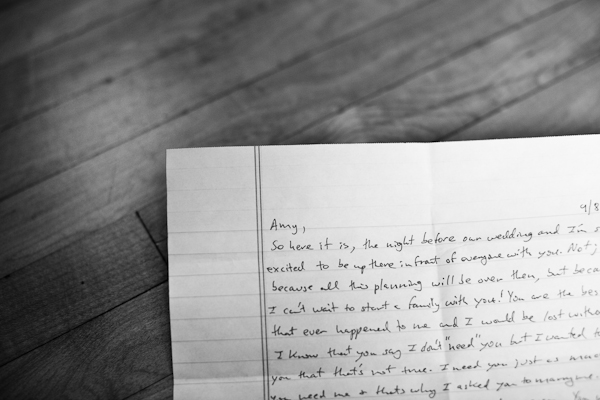 9/8
Amy,
So here it is, the night before our wedding and I'm s
excited to be up there infront of everyone with you. Not j
because all this planning will be over then, but beca
I can't wait to start a family with you! You are the bes
that ever happened to me and I would be lost witho
I know that you say I don't "need" you but I wanted t
you that that's not true. I need you just as muc
you need me & thats why I asked you to marry me.